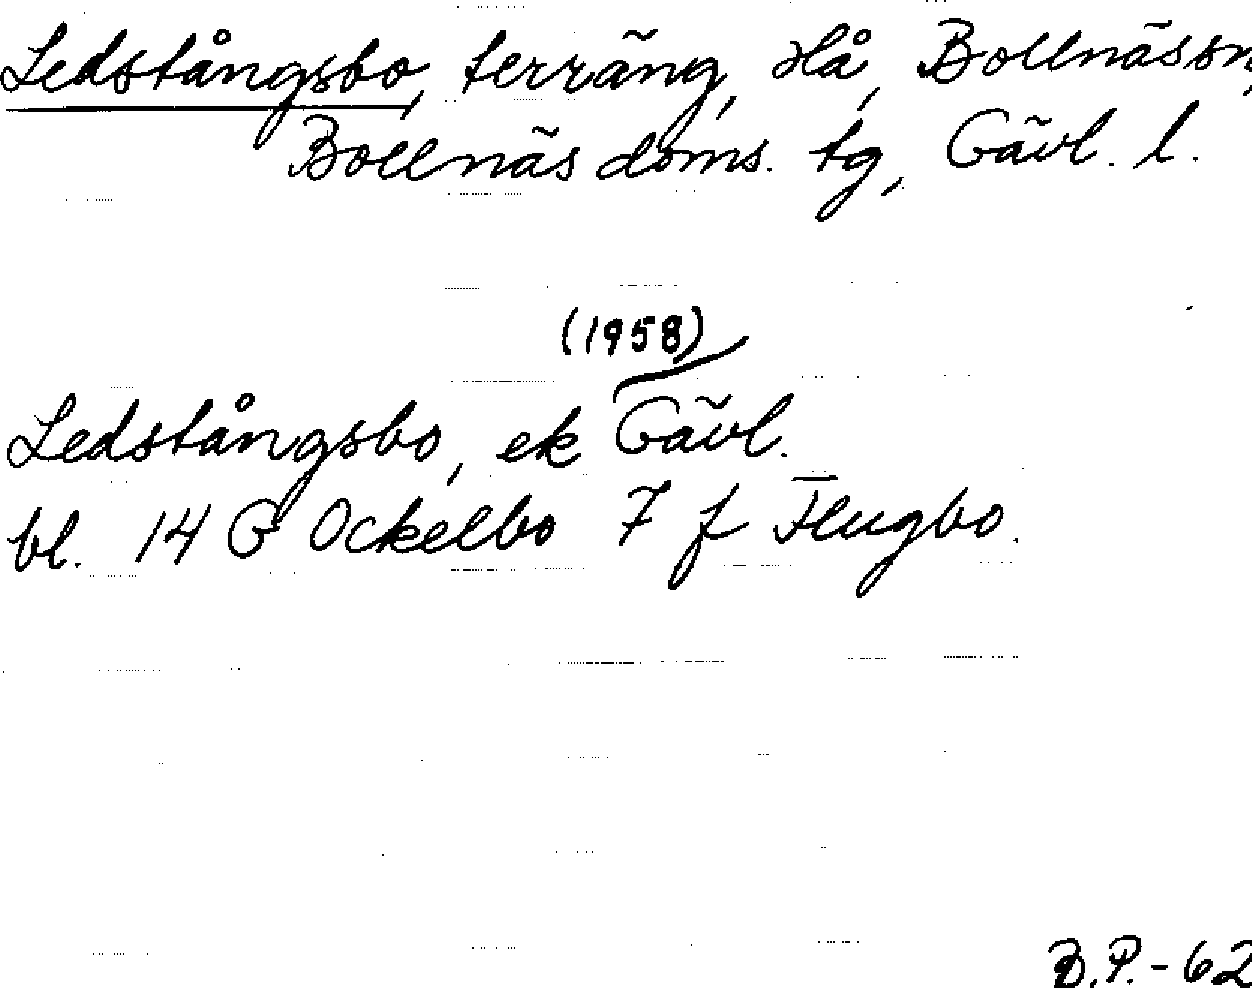 Ledstångsbo, terräng, Hå, Bollnässn,
Bollnäs doms. tg, Gävl. l.
(1958)
Ledstångsbo, ek Gävl.
bl. 14 G Ockelbo 7 f Flugbo.
B.P.-62